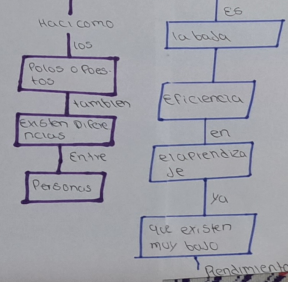 Haci como
los
Polos opues-
tos
tambien
Existen Difere
ncias
Entre
Personas
Es
la baja
Eficiencia
en
el aprendiza
je
ya
que existen
muy bajo
Rendimiento